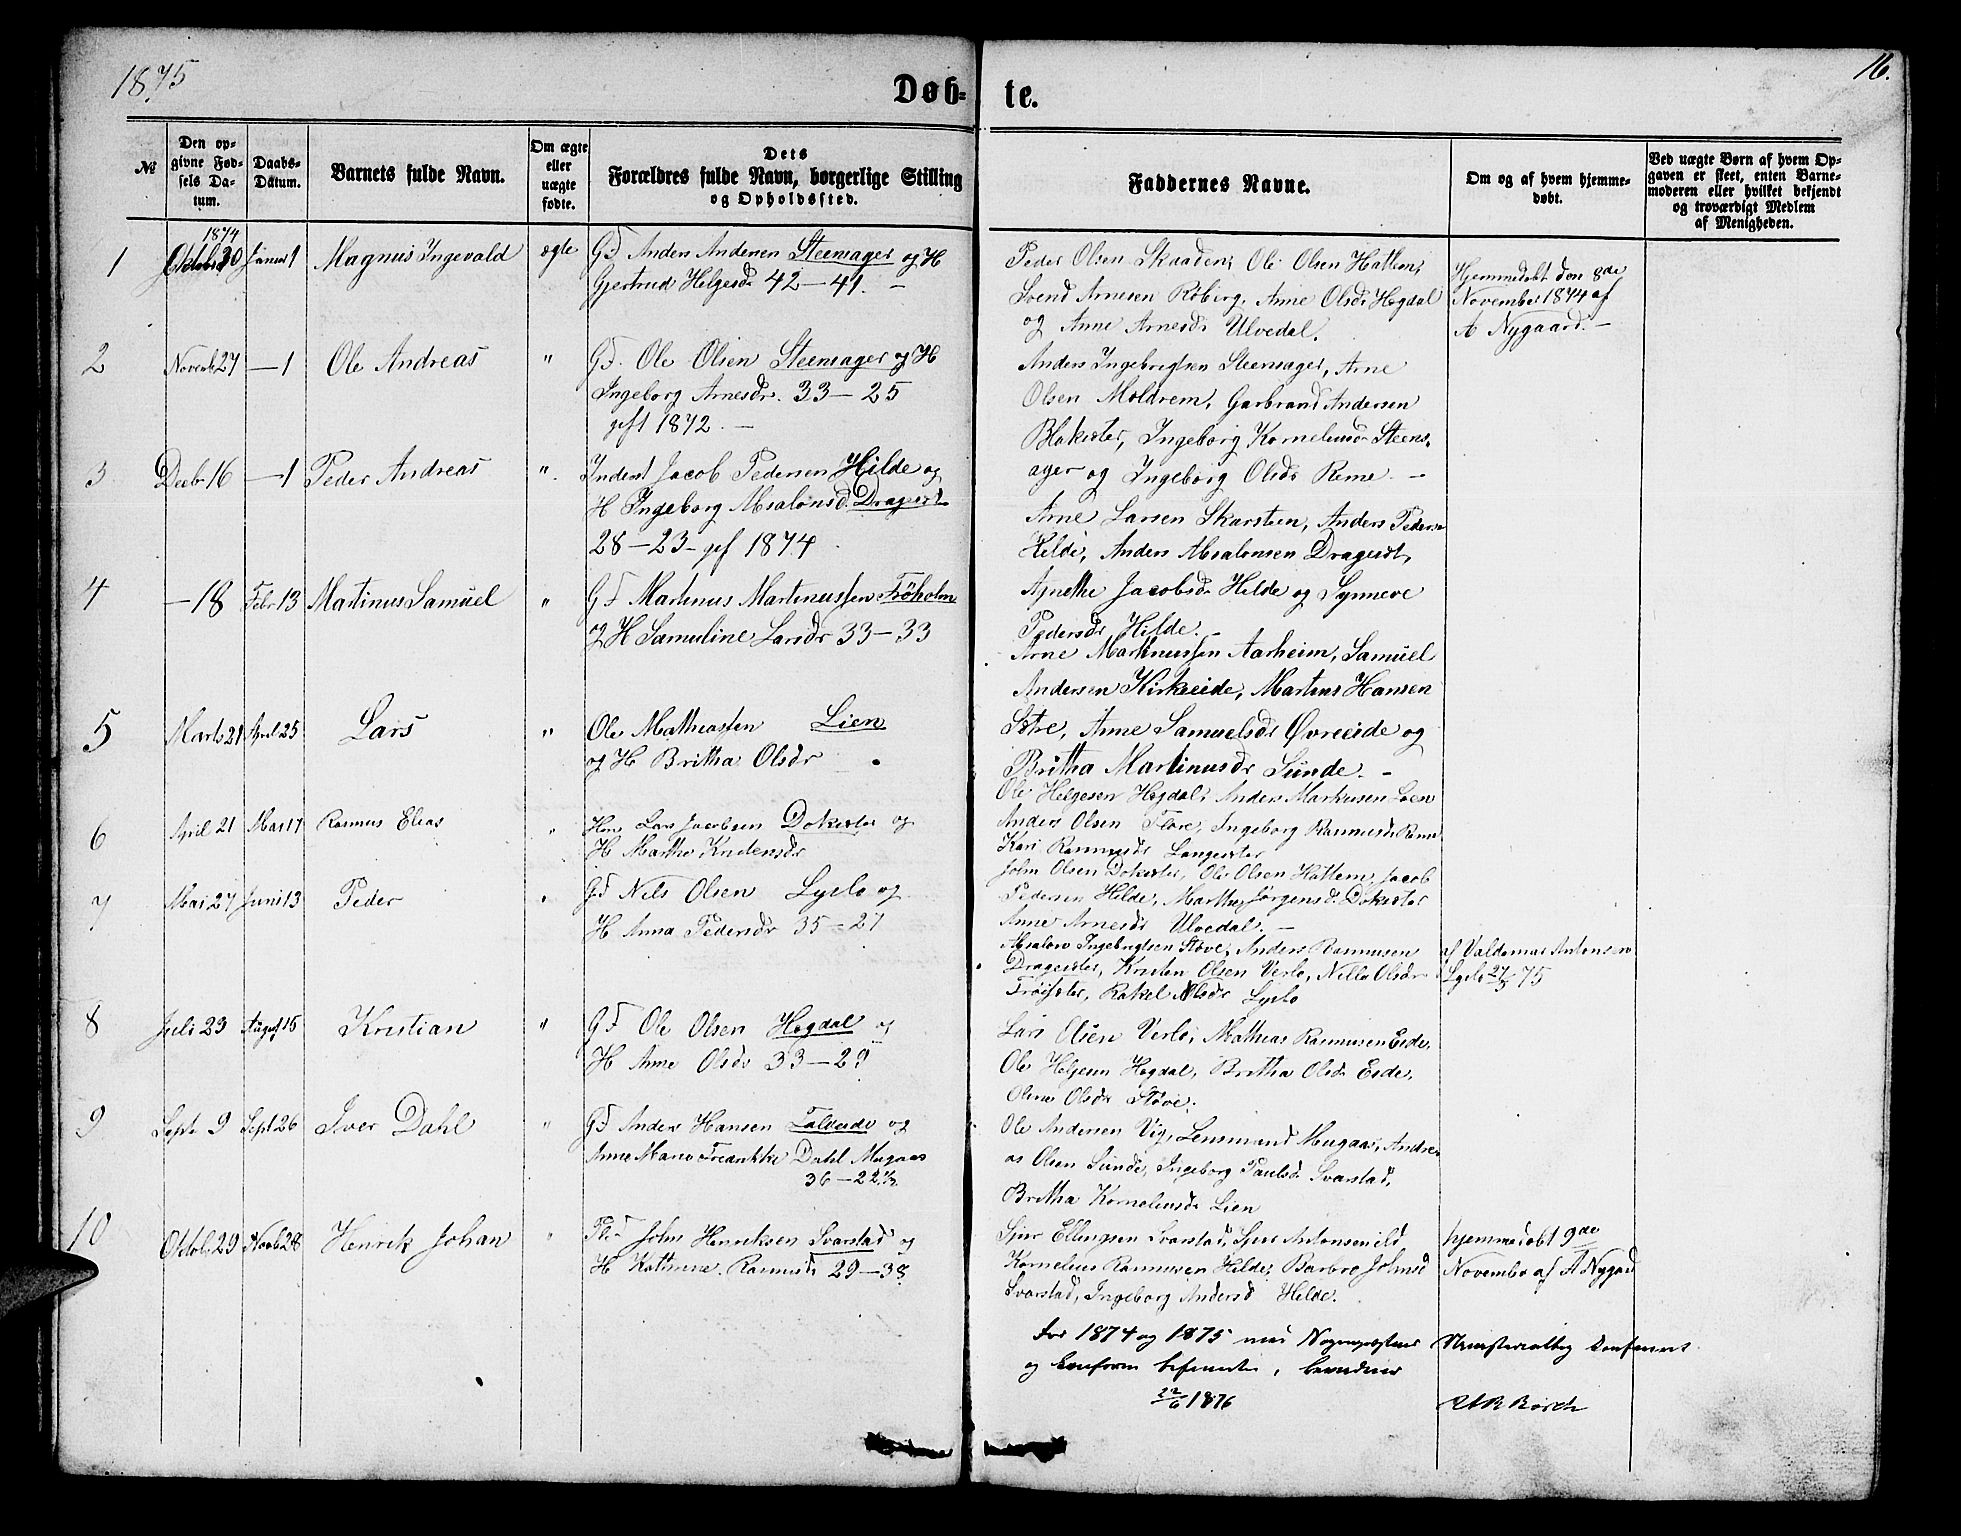 1875
Døb-
te.
16.
№
Den op-
givne Fød-
sels Da-
tum.
Daabs-
Datum.
Barnets fulde Navn.
Om ægte
eller
uægte
fødte.
Dets
Forældres fulde Navn, borgerlige Stilling
og Opholdssted.
Faddernes Navne.
Om og af hvem hjemme-
døbt.
Ved uægte Børn af hvem Op-
gaven er skeet, enten Barne-
moderen eller hvilket bekjendt
og troværdigt Medlem
af Menigheden.
1874
1 Oktober 30 Januar 1 Magnus Ingevald ægte Gd Anders Andersen Steensager og H
Gjertrud Helgesdr 42 — 41. —
Peder Olsen Skaaden, Ole Olsen Hattem,
Svend Arnesen Röberg, Anne Olsdr Hogdal
og Anne Arnesdr Ulvedal.
Hjemmedøbt den 8de
November 1874 af
A Nygaard. —
2 Novemb 27 — 1 Ole Andreas " Gd. Ole Olsen Steensager og H
Ingeborg Arnesdr. 33 — 25
gift 1872. —
Anders Ingebrigtsen Steensager, Arne
Olsen Moldrem, Garbrand Andersen
Blakseter, Ingeborg Kornelusdr Steens-
ager og Ingeborg Olsdr Reme. —
3 Decb 16 — 1 Peder Andreas " Inderst Jacob Pedersen Hilde og
H Ingeborg Absalonsd. Dragesæt
28 — 23 — gif 1874.
Arne Larsen Skarsteen, Anders Peders
Hilde, Anders Absalonsen Dragesæt,
Agnethe Jacobsdr Hilde og Synneve
Pedersdr Hilde. —
4 — 18 Febr 13 Martinus Samuel " Gd Martinus Martinussen Fröholm
og H Samuline Larsdr 33 — 33
Arne Martinussen Aarheim, Samuel
Andersen Kirkeeide, Martens Hansen
Sætre, Anne Samuelsdr Øvreeide og
Britha Martinusdr Sunde. —
5 Marts 21 April 25 Lars " Ole Mathiassen Lien
og H Britha Olsdr
Ole Helgesen Hogdal, Anders Markusen Loen
Anders Olsen Flore, Ingeborg Rasmusdr Reme
Kari Rasmusdr Langeseter
6 April 21 Mai 17 Rasmus Elias " Hm Lars Jacobsen Dokseter og
H Marthe Knudensdr
John Olsen Dokseter, Ole Olsen Hattem, Jacob
Pedersen Hilde, Marthe Jörgensd. Dokseter
Anne Arnesdr Ulvedal. —
7 Mai 27 Juni 13 Peder " Gd Nils Olsen Lyslo og
H Anna Pedersdr 35 — 27
Absalon Ingebrigtsen Støve, Anders Rasmusen
Dragseter, Kristen Olsen Verlo, Nille Olsdr
Fröisæter, Rakel Olsdr Lyslo
af Valdemar Antonsen
Lyslo 27/5 75
8 Juli 23 August 15 Kristian " Gd Ole Olsen Hogdal og
H Anne Olsdr 33 — 29
Lars Olsen Verlo, Mathias Rasmusen Eide,
Ole Helgesen Hogdal, Britha Olsdr Eide,
Oline Olsdr Støve.
9 Sept 9 Sept 26 Iver Dahl " Gd Anders Hansen Tolveide og
Anne Marie Fredrikke Dahl Mugaas
36 — 22 1/2
Ole Andersen Vig, Lensmand Mugaas, Andre-
as Olsen Sunde, Ingeborg Paulsdr Svarstad,
Britha Korneliusdr Lien
10 Octob 29 Novb 28 Henrik Johan " Pld John Henriksen Svarstad og
H Kathrine Rasmusd 29 — 38
Sjur Ellingsen Svarstad, Sjur Antonsen ild
Kornelius Rasmusen Hilde, Barbro Johnsd
Svarstad, Ingeborg Andersd Hilde.
hjemmedøbt 9de
Novembr af A Nygard
For 1874 og 1875 med Sogneprestens Ministerialbog confereret
og conform befunden, bevidner
22/6 1876 Börch